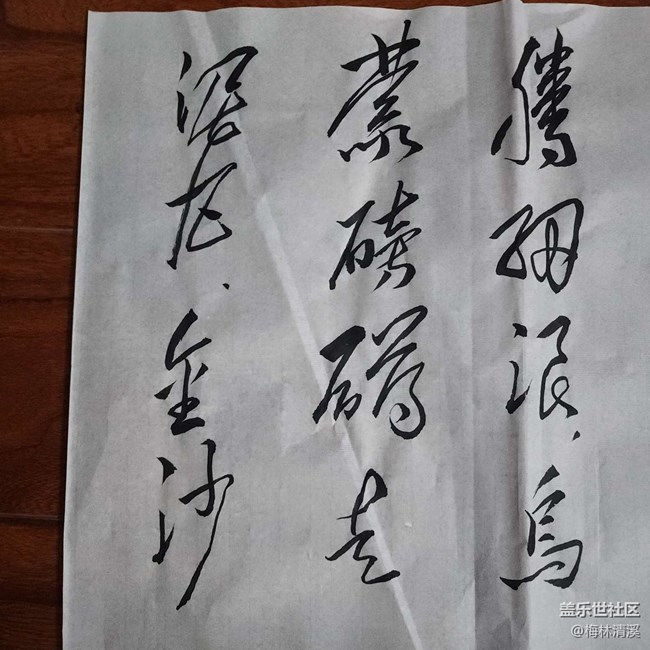 腾细浪，乌
蒙磅礴走
泥丸，金沙
盖乐世社区
@梅林清溪